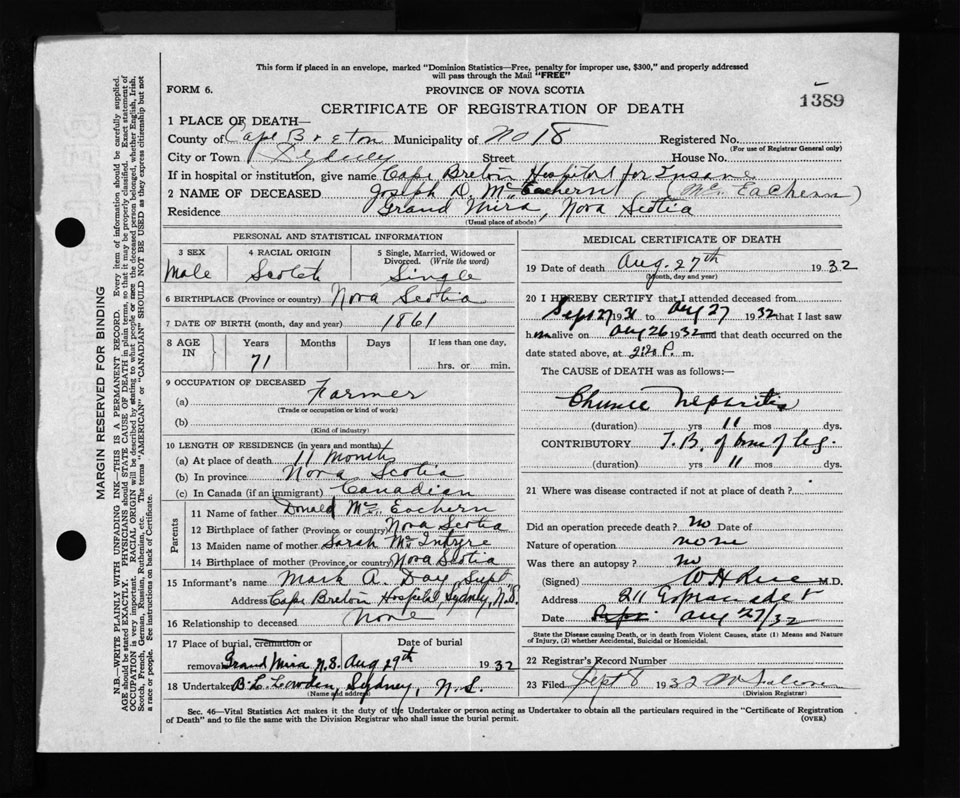 This form if placed in an envelope, marked "Dominion Statistics—Free, penalty for improper use, $300," and properly addressed
will pass through the Mail "FREE"
FORM 6.
PROVINCE OF NOVA SCOTIA
1389
CERTIFICATE OF REGISTRATION OF DEATH
1 PLACE OF DEATH—
County of Cape Breton Municipality of No 18 Registered No.
(For use of Registrar General only)
City or Town Sydney Street House No.
If in hospital or institution, give name Cape Breton Hospital for Insane
2 NAME OF DECEASED Joseph D. McEachern (McEachern)
Residence Grand Mira, Nova Scotia
(Usual place of abode)
PERSONAL AND STATISTICAL INFORMATION
3 SEX 4 RACIAL ORIGIN 5 Single, Married, Widowed or
Divorced. (Write the word)
Male Scotch Single
6 BIRTHPLACE (Province or country) Nova Scotia
7 DATE OF BIRTH (month, day and year) 1861
8 AGE IN Years Months Days If less than one day,
71 hrs. or min.
9 OCCUPATION OF DECEASED
(a) Farmer
(Trade or occupation or kind of work)
(b)
(Kind of industry)
10 LENGTH OF RESIDENCE (in years and months)
(a) At place of death 11 Months
(b) In province Nova Scotia
(c) In Canada (if an immigrant) Canadian
Parents
11 Name of father Donald McEachern
12 Birthplace of father (Province, or country) Nova Scotia
13 Maiden name of mother Sarah McIntyre
14 Birthplace of mother (Province, or country) Nova Scotia
15 Informant's name Mark A. Day, Supt.
Address Cape Breton Hospital, Sydney, N.S.
16 Relationship to deceased None
17 Place of burial, cremation or Date of burial
removal Grand Mira N.S. Aug 29th 1932
18 Undertaker B.L. Lowden, Sydney, N.S.
(Name and address)
MEDICAL CERTIFICATE OF DEATH
19 Date of death Aug. 27th 1932
(Month, day and year)
20 I HEREBY CERTIFY that I attended deceased from
Sept 27 1931 to Aug 27 1932 that I last saw
him alive on Aug 26 1932 and that death occurred on the
date stated above, at P. m.
The CAUSE OF DEATH was as follows:—
Chronic Nephritis
(duration) yrs 11 mos dys.
CONTRIBUTORY T.B. of bone of leg
(duration) yrs 11 mos dys.
21 Where was disease contracted if not at place of death?
Did an operation precede death? no Date of
Nature of operation none
Was there an autopsy? no
(Signed) M.D.
Address 211 Esplanade
Date Aug 27/32
State the Disease causing Death, or in death from Violent Causes, state (1) Means and Nature
of Injury, (2) whether Accidental, Suicidal or Homicidal.
22 Registrar's Record Number
23 Filed Sept 8 1932
(Division Registrar)
Sec. 46—Vital Statistics Act makes it the duty of the Undertaker or person acting as Undertaker to obtain all the particulars required in the "Certificate of Registration
of Death" and to file the same with the Division Registrar who shall issue the burial permit.
(OVER)
MARGIN RESERVED FOR BINDING
N.B.—WRITE PLAINLY WITH UNFADING INK—THIS IS A PERMANENT RECORD. Every item of information should be carefully supplied.
AGE should be stated EXACTLY. PHYSICIANS should STATE CAUSE OF DEATH in plain terms, so that it may be properly classified. Exact statement of
OCCUPATION is very important. RACIAL ORIGIN will be described by stating to what people or race the deceased person belonged, whether English, Irish,
Scotch, French, German, Russian, Ruthenian, etc. The terms "AMERICAN" or "CANADIAN" SHOULD NOT BE USED as they express citizenship but not
a race or people. See instructions on back of Certificate.